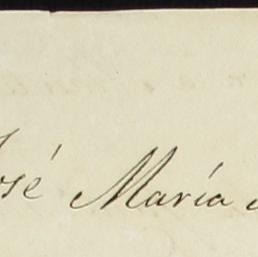 José María